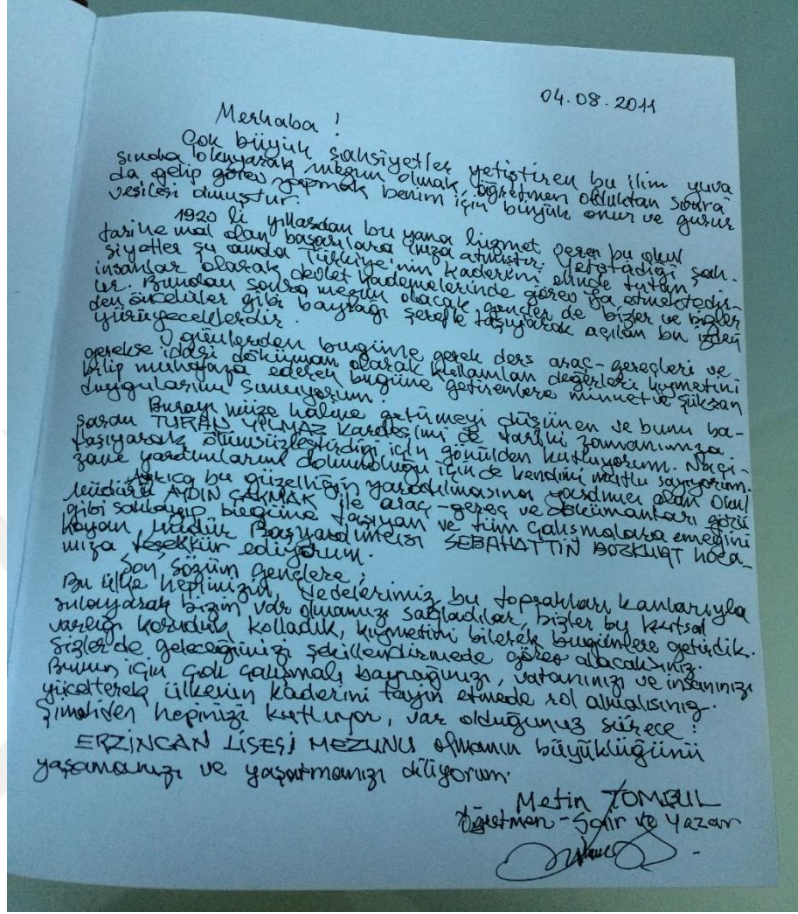 04.08.2011
Merhaba !
Çok büyük şahsiyetler yetiştiren bu ilim yuva
sında okuyarak mezun olmak, öğretmen olduktan sonra
da gelip görev yapmak benim için büyük onur ve gurur
vesilesi olmuştur.
1920 li yıllardan bu yana hizmet veren bu okul
tarihe mal olan başarılara imza atmıştır. Yetiştirdiği şah-
siyetler şu anda Türkiye'nin kaderini elinde tutan
insanlar olarak devlet kademelerinde görev ifa etmektedir-
ler. Bundan sonra mezun olacak gençler de bizler ve bizler
den öncekiler gibi bayrağı şerefle taşıyarak açılan bu izden
yürüyeceklerdir.
O günlerden bugünle gerek ders araç-gereçleri ve
gerekse idari döküman olarak kullanılan değerleri kıymetini
bilip muhafaza ederek bugüne getirenlere minnet ve şükran
duygularımı sunuyorum.
Burayı müze haline getirmeyi düşünen ve bunu ba-
şaran TURAN YILMAZ Kardeşimi de tarihi zamanımıza
taşıyarak ölümsüzleştirdiği için gönülden kutluyorum. Naçi-
zane yardımlarım dokunduğu için de kendimi mutlu sayıyorum.
Ayrıca bu güzelliğin yaratılmasına yardımcı olan Okul
Müdürü AYDIN ÇAKMAK ile araç-gereç ve dökümanları gözü
gibi saklayıp bugüne taşıyan ve tüm çalışmalara emeğini
koyan Müdür Başyardımcısı SEBAHATTİN BOZKURT hoca-
mıza teşekkür ediyorum.
Son sözüm gençlere ;
Bu ülke hepimizin, dedelerimiz bu toprakları kanlarıyla
sulayarak bizim var olmamızı sağladılar, bizler bu kutsal
varlığı koruduk, kolladık, kıymetini bilerek bugünlere getirdik.
Sizler de geleceğimizi şekillendirmede görev alacaksınız.
Bunun için çok çalışmalı bayrağınızı, vatanınızı ve insanınızı
yücelterek ülkenin kaderini tayin etmede rol almalısınız.
Şimdiden hepinizi kutluyor, var olduğunuz sürece :
ERZİNCAN LİSESİ MEZUNU olmanın büyüklüğünü
yaşamanızı ve yaşatmanızı diliyorum.
Metin TOMBUL
Öğretmen - Şair ve Yazar